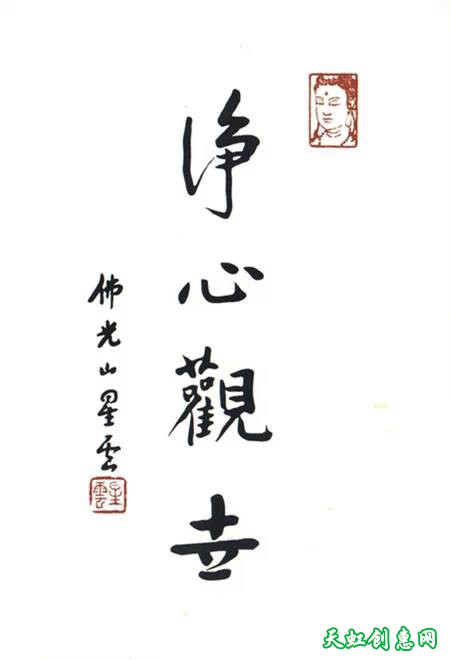 淨心觀世
佛光山星雲
星雲
天虹创惠网